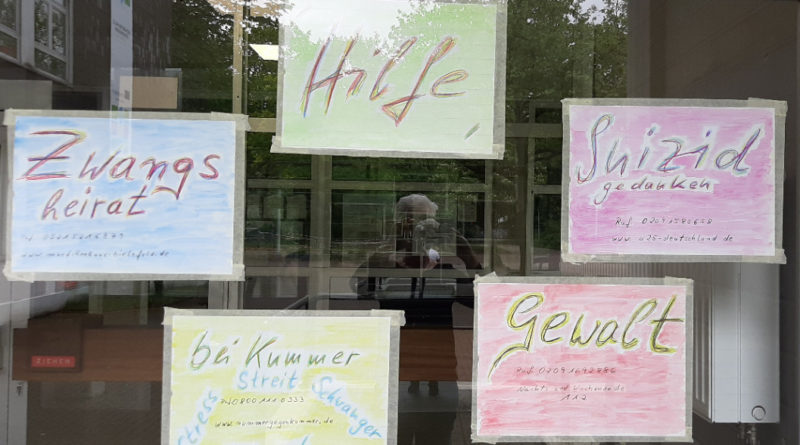 Hilfe,
Zwangs
heirat
Ruf 05215216879
www.maedchenhaus-bielefeld.de
Suizid
gedanken
Ruf 02091580658
www.u25-deutschland.de
bei Kummer
Streit Schwanger
Stress
0800 111 0333
www.nummergegenkummer.de
Gewalt
Ruf 02091692886
Nachts und Wochenende
112
ZIEHEN